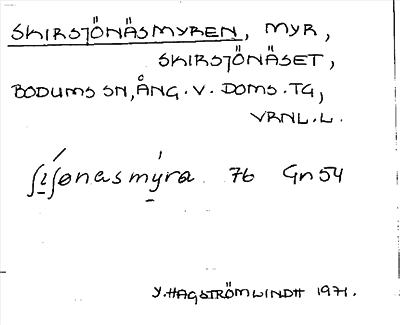 SKIRSJÖNÄSMYREN, MYR,
SKIRSJÖNÄSET,
BODUMS SN, ÅNG. V. DOMS. TG,
VRNL. L.
ʃi̱ʃønasmy̱ra 76 Gn 54
Y. HAGSTRÖM LINDH 1971.